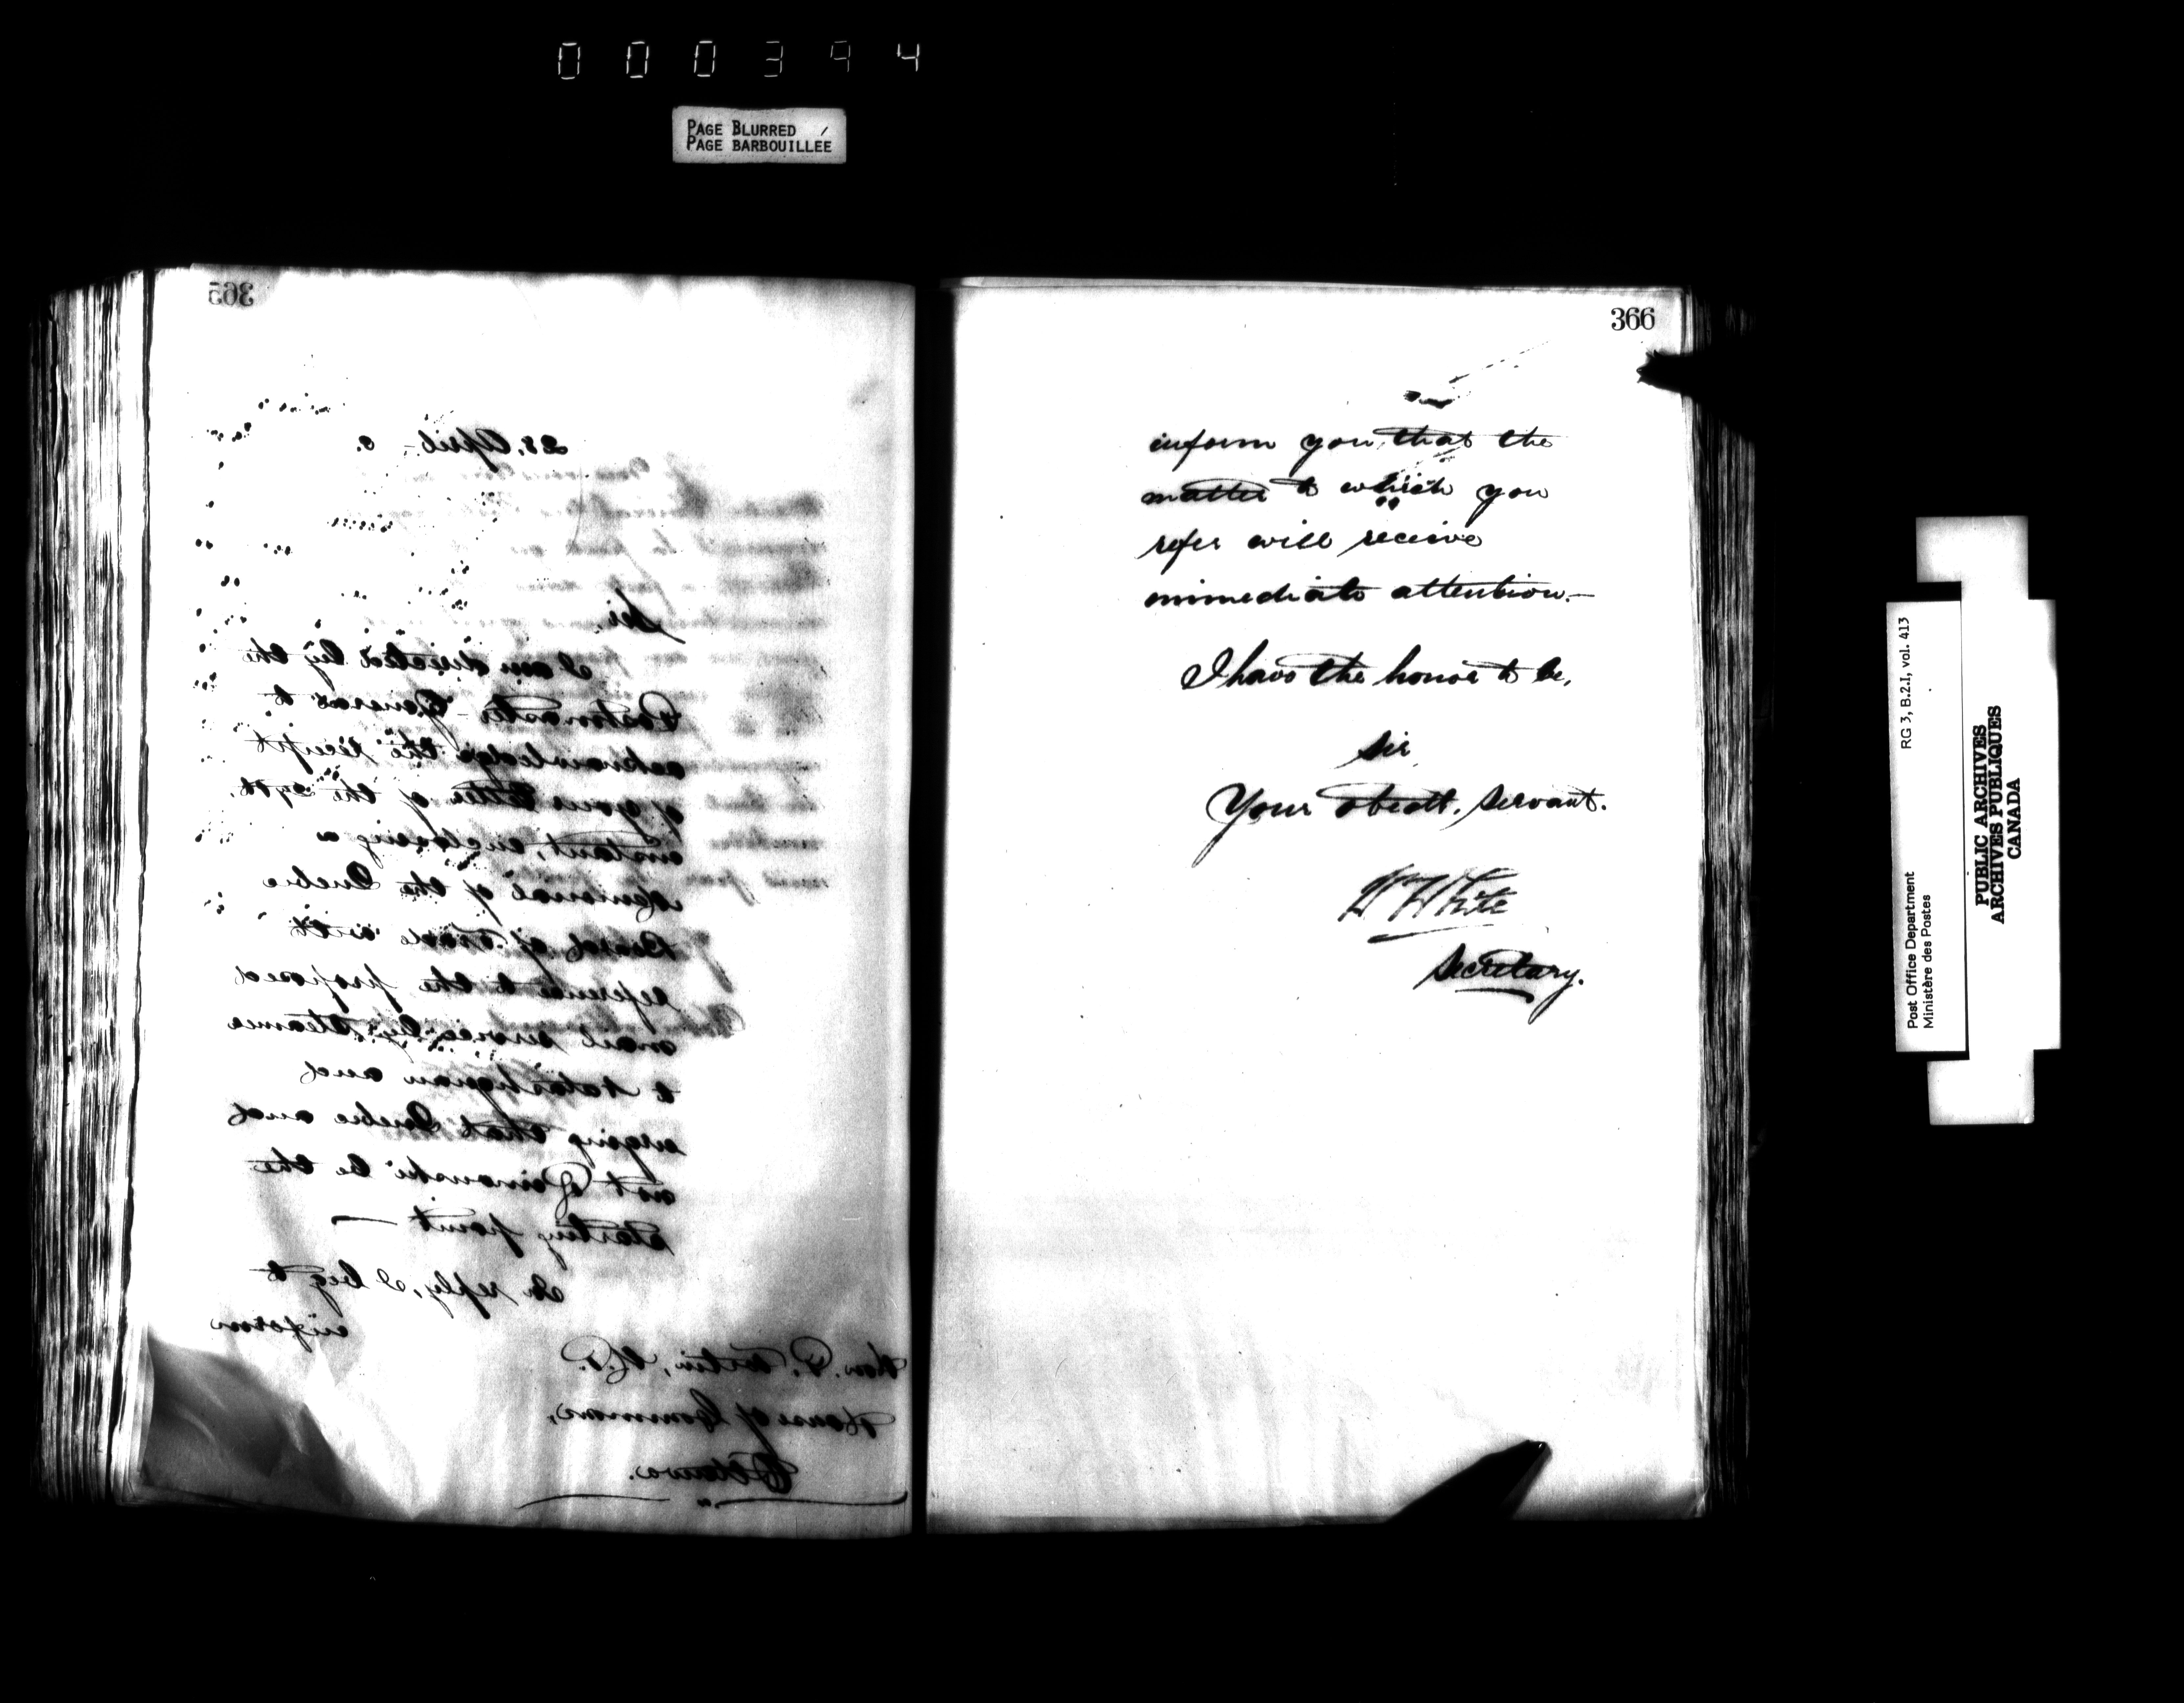 000394
PAGE BLURRED
PAGE BARBOUILLÉE
365
28, April
Sir,
I am directed by the
Postmaster General to
acknowledge the receipt
of your letter of the 27th,
instant, enclosing a
Memorial of the Quebec
Board of Trade with
reference to the proposed
mail service by steamer
to and
urging that Quebec and
not Rimouski be the
starting point —
In reply, I beg to
inform
Hon. P. Fortin, M.P.
House of Commons,
Ottawa.
366
inform you that the
matter to which you
refer will receive
immediate attention.—
I have the honor to be,
Sir,
Your obedt. Servant.
W White
Secretary.
Post Office Department
Ministère des Postes
RG 3, B.2.I, vol. 413
PUBLIC ARCHIVES
ARCHIVES PUBLIQUES
CANADA